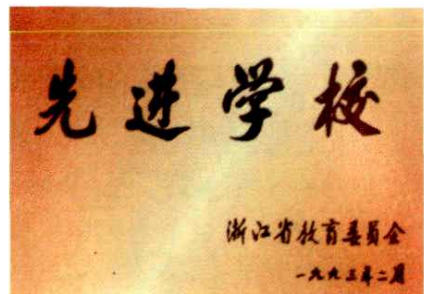 先进学校
浙江省教育委员会
一九九三年二月